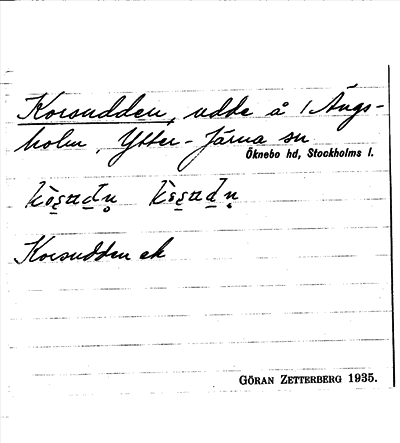 Korsudden, udde å Ängs-
holm, Ytter-Järna sn
Öknebo hd, Stockholms l.
Korsudden ek
GÖRAN ZETTERBERG 1935.